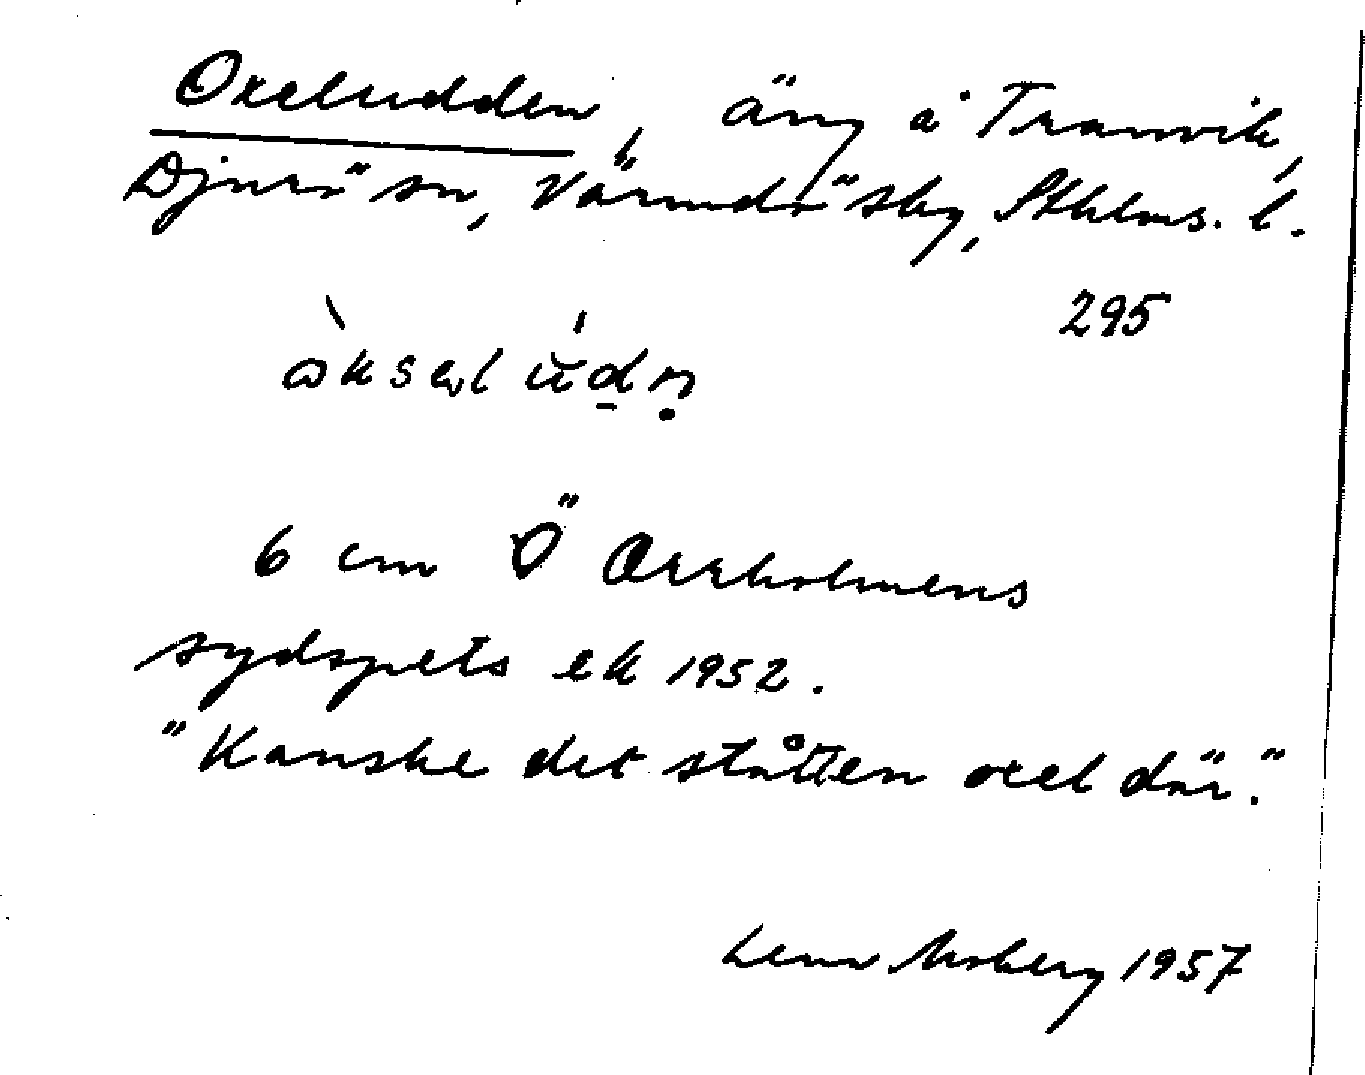 Oxeludden, äng å Tranvik,
Djurö sn, Värmdö skg, Sthlms. l.
295
ὼksəlúdṇ
6 cm Ö Orrholmens
sydspets ek 1952.
"Kanske det stått en oxel där."
Lena Moberg 1957